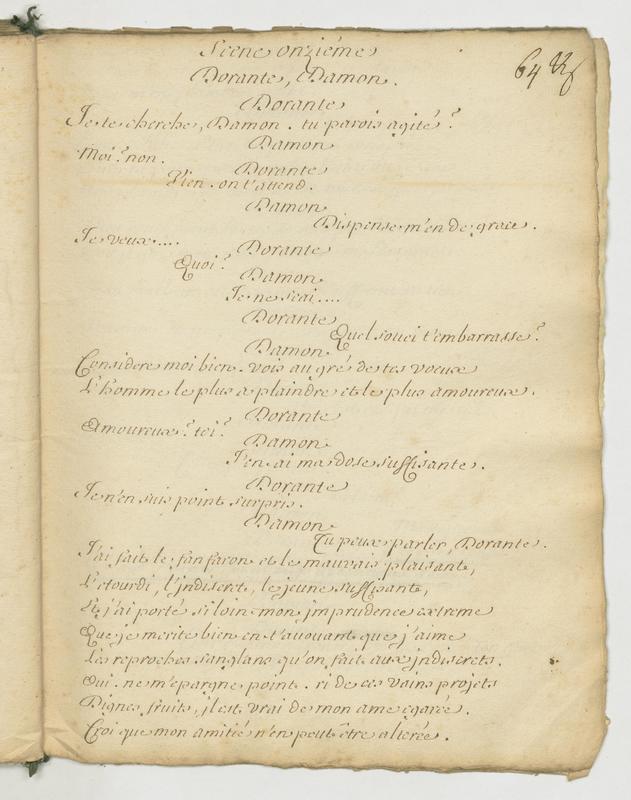 Scene onziéme
64
Dorante, Damon.
Dorante
Je te cherche, Damon. tu parois agité?
Damon
Moi? non.
Dorante
Vien. on t'attend.
Damon
Dispense m'en de grace.
Je veux....
Dorante
Quoi?
Damon
Je ne scai....
Dorante
Quel souci t'embarrasse?
Damon
Considere moi bien. vois au gré de tes voeux
L'homme le plus a plaindre et le plus amoureux.
Dorante
Amoureux? toi?
Damon
J'en ai ma dose suffisante.
Dorante
Je n'en suis point surpris.
Damon
Tu peux parler, Dorante.
J'ai fait le fanfaron et le mauvais plaisant,
L'etourdi, l'jndiscret, le jeune suffisant,
Et j'ai porté si loin mon jmprudence extreme
Que je merite bien en t'avouant que j'aime
Les reproches sanglans qu'on fait aux jndiscrets.
Oui. ne m'epargne point. ri de ces vains projets
Dignes fruits, jl est vrai de mon ame egarée.
Croi que mon amitié n'en peut être alterée.